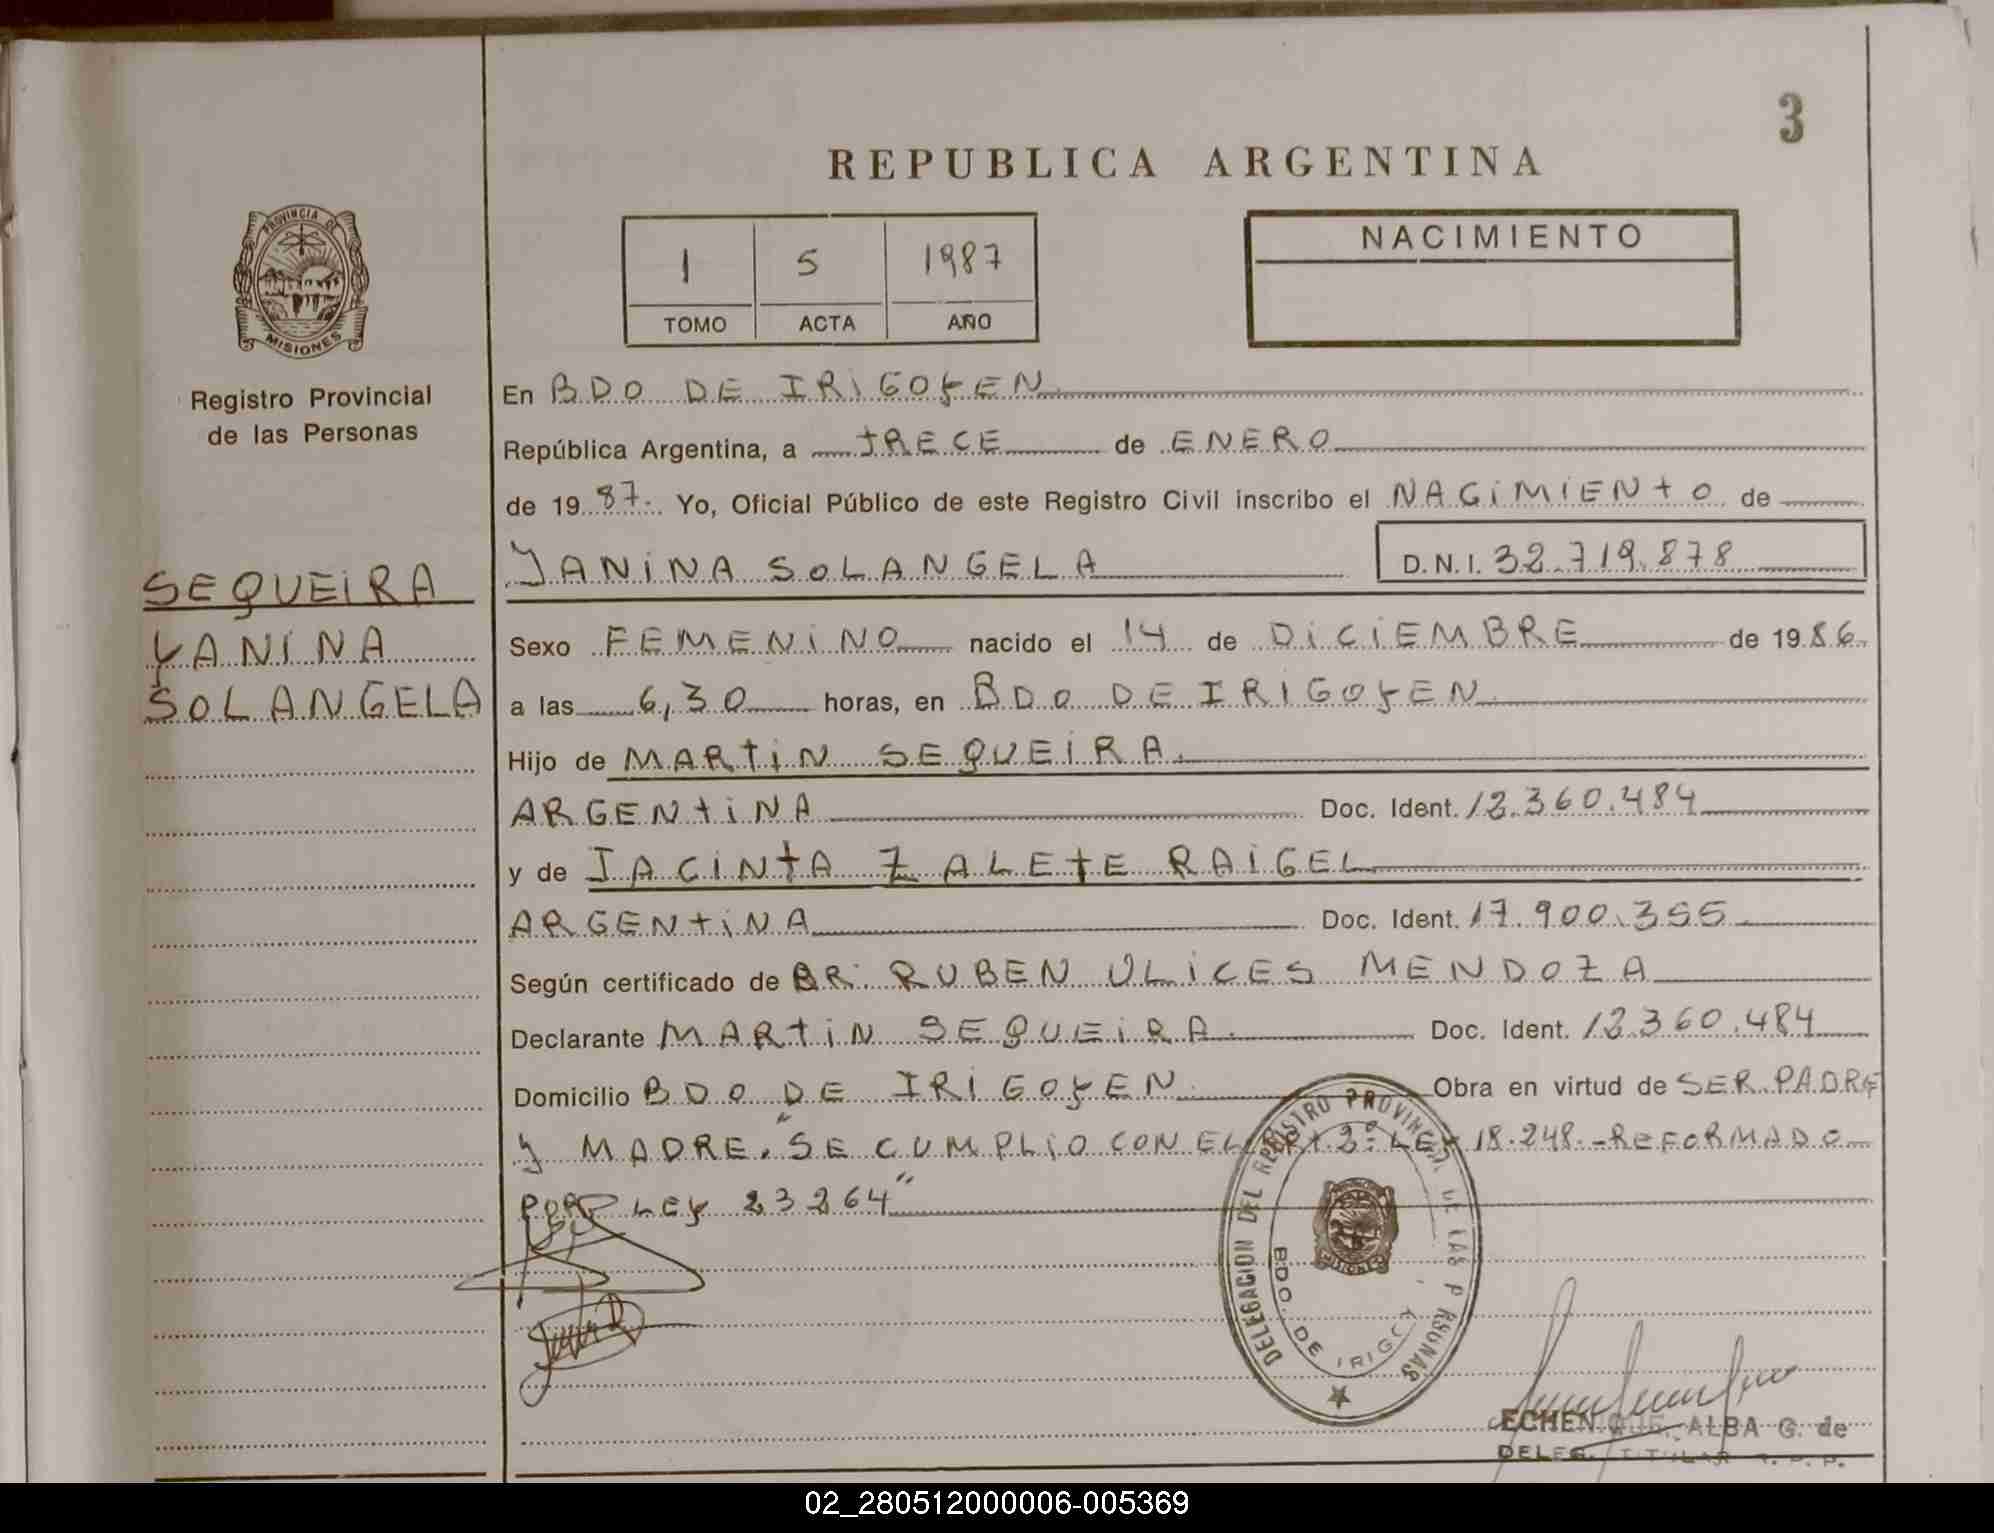 3
REPUBLICA ARGENTINA
PROVINCIA DE
MISIONES
Registro Provincial
de las Personas
1 5 1987
TOMO ACTA AÑO
NACIMIENTO
En BDO DE IRIGOYEN
República Argentina, a TRECE de ENERO
de 1987. Yo, Oficial Público de este Registro Civil inscribo el NACIMIENTO de
YANINA SOLANGELA D.N.I. 32.719.878
SEQUEIRA
YANINA
SOLANGELA
Sexo FEMENINO nacido el 14 de DICIEMBRE de 1986.
a las 6,30 horas, en BDO DE IRIGOYEN
Hijo de MARTIN SEQUEIRA.
ARGENTINA Doc. Ident. 12.360.484
y de JACINTA ZALETE RAIGEL
ARGENTINA Doc. Ident. 17.900.355
Según certificado de DR. RUBEN ULICES MENDOZA
Declarante MARTIN SEQUEIRA. Doc. Ident. 12.360.484
Domicilio BDO DE IRIGOYEN Obra en virtud de SER PADRE
Y MADRE. "SE CUMPLIO CON EL ART 2º LEY 18.248.-REFORMADO
POR LEY 23264"
DELEGACION DEL REGISTRO PROVINCIAL DE LAS P RSONAS
BDO. DE IRIGOY
MISIONES
ECHENIQUE, ALBA G. de
DELEG. TITULAR R. P. P.
02_280512000006-005369